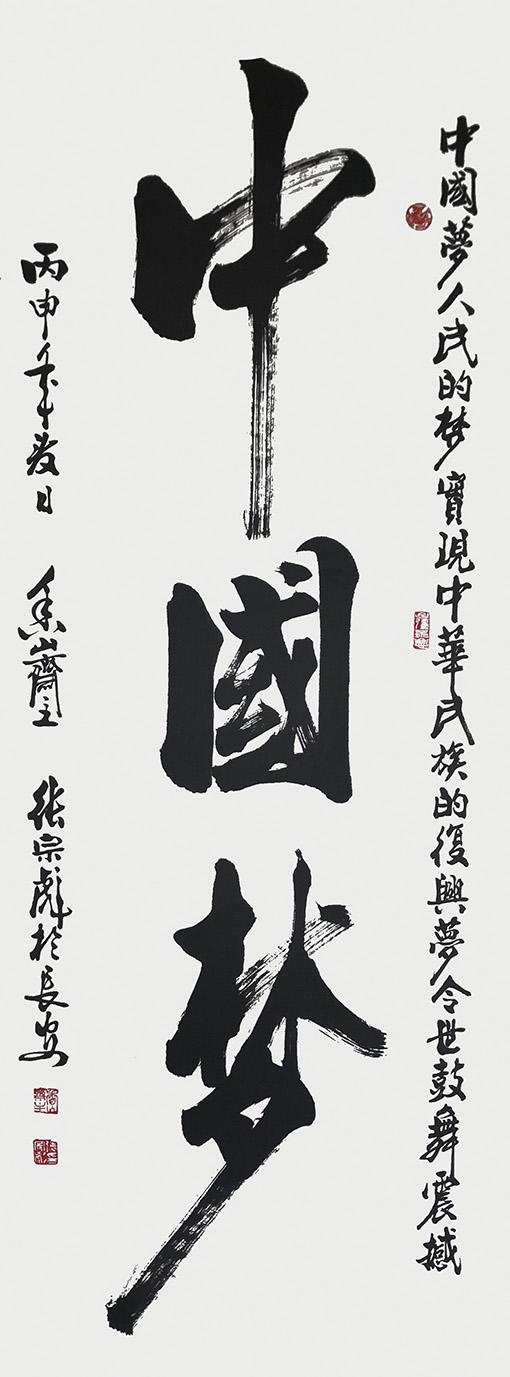 中國夢人民的梦實現中華民族的復興夢令世鼓舞震撼
中國梦
丙申年日
山齋主
張宗彪於長安